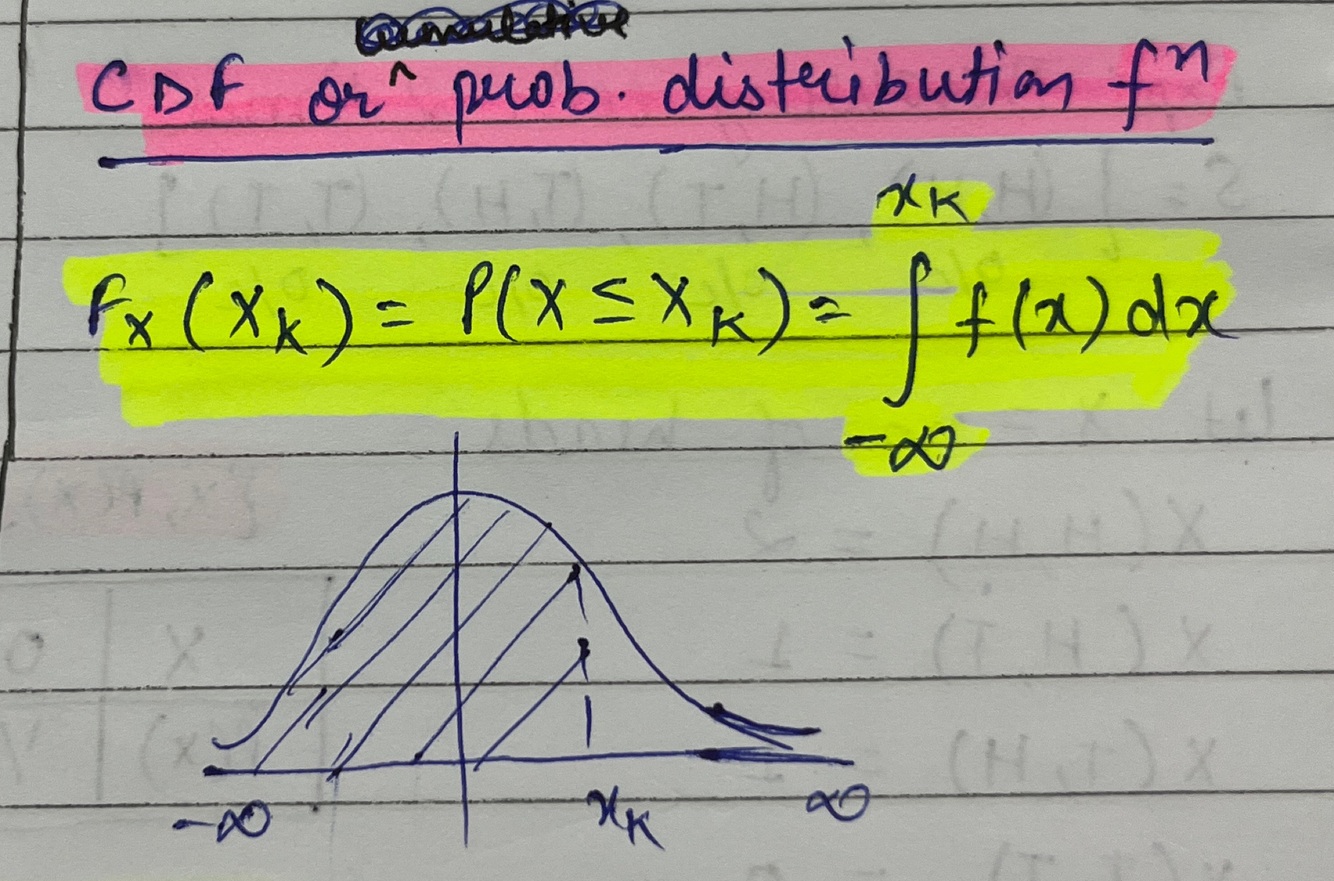 CDF or ^ prob. distribution fⁿ
x_K
F_X (X_K) = P(X ≤ X_K) = ∫ f(x) dx
-∞
-∞ x_K ∞